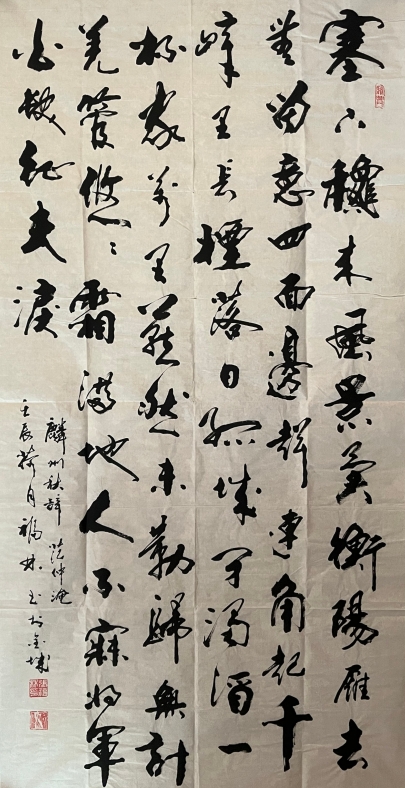 塞下龝来風景異衡陽雁去
無留意四面邊聲連角起千
嶂里长煙落日孤城闭濁酒一
杯家萬里燕然未勒歸無計
羌管悠悠霜滿地人不寐将軍
白髮征夫淚
麟州秋辭 范仲淹
壬辰荷月福林书於金城